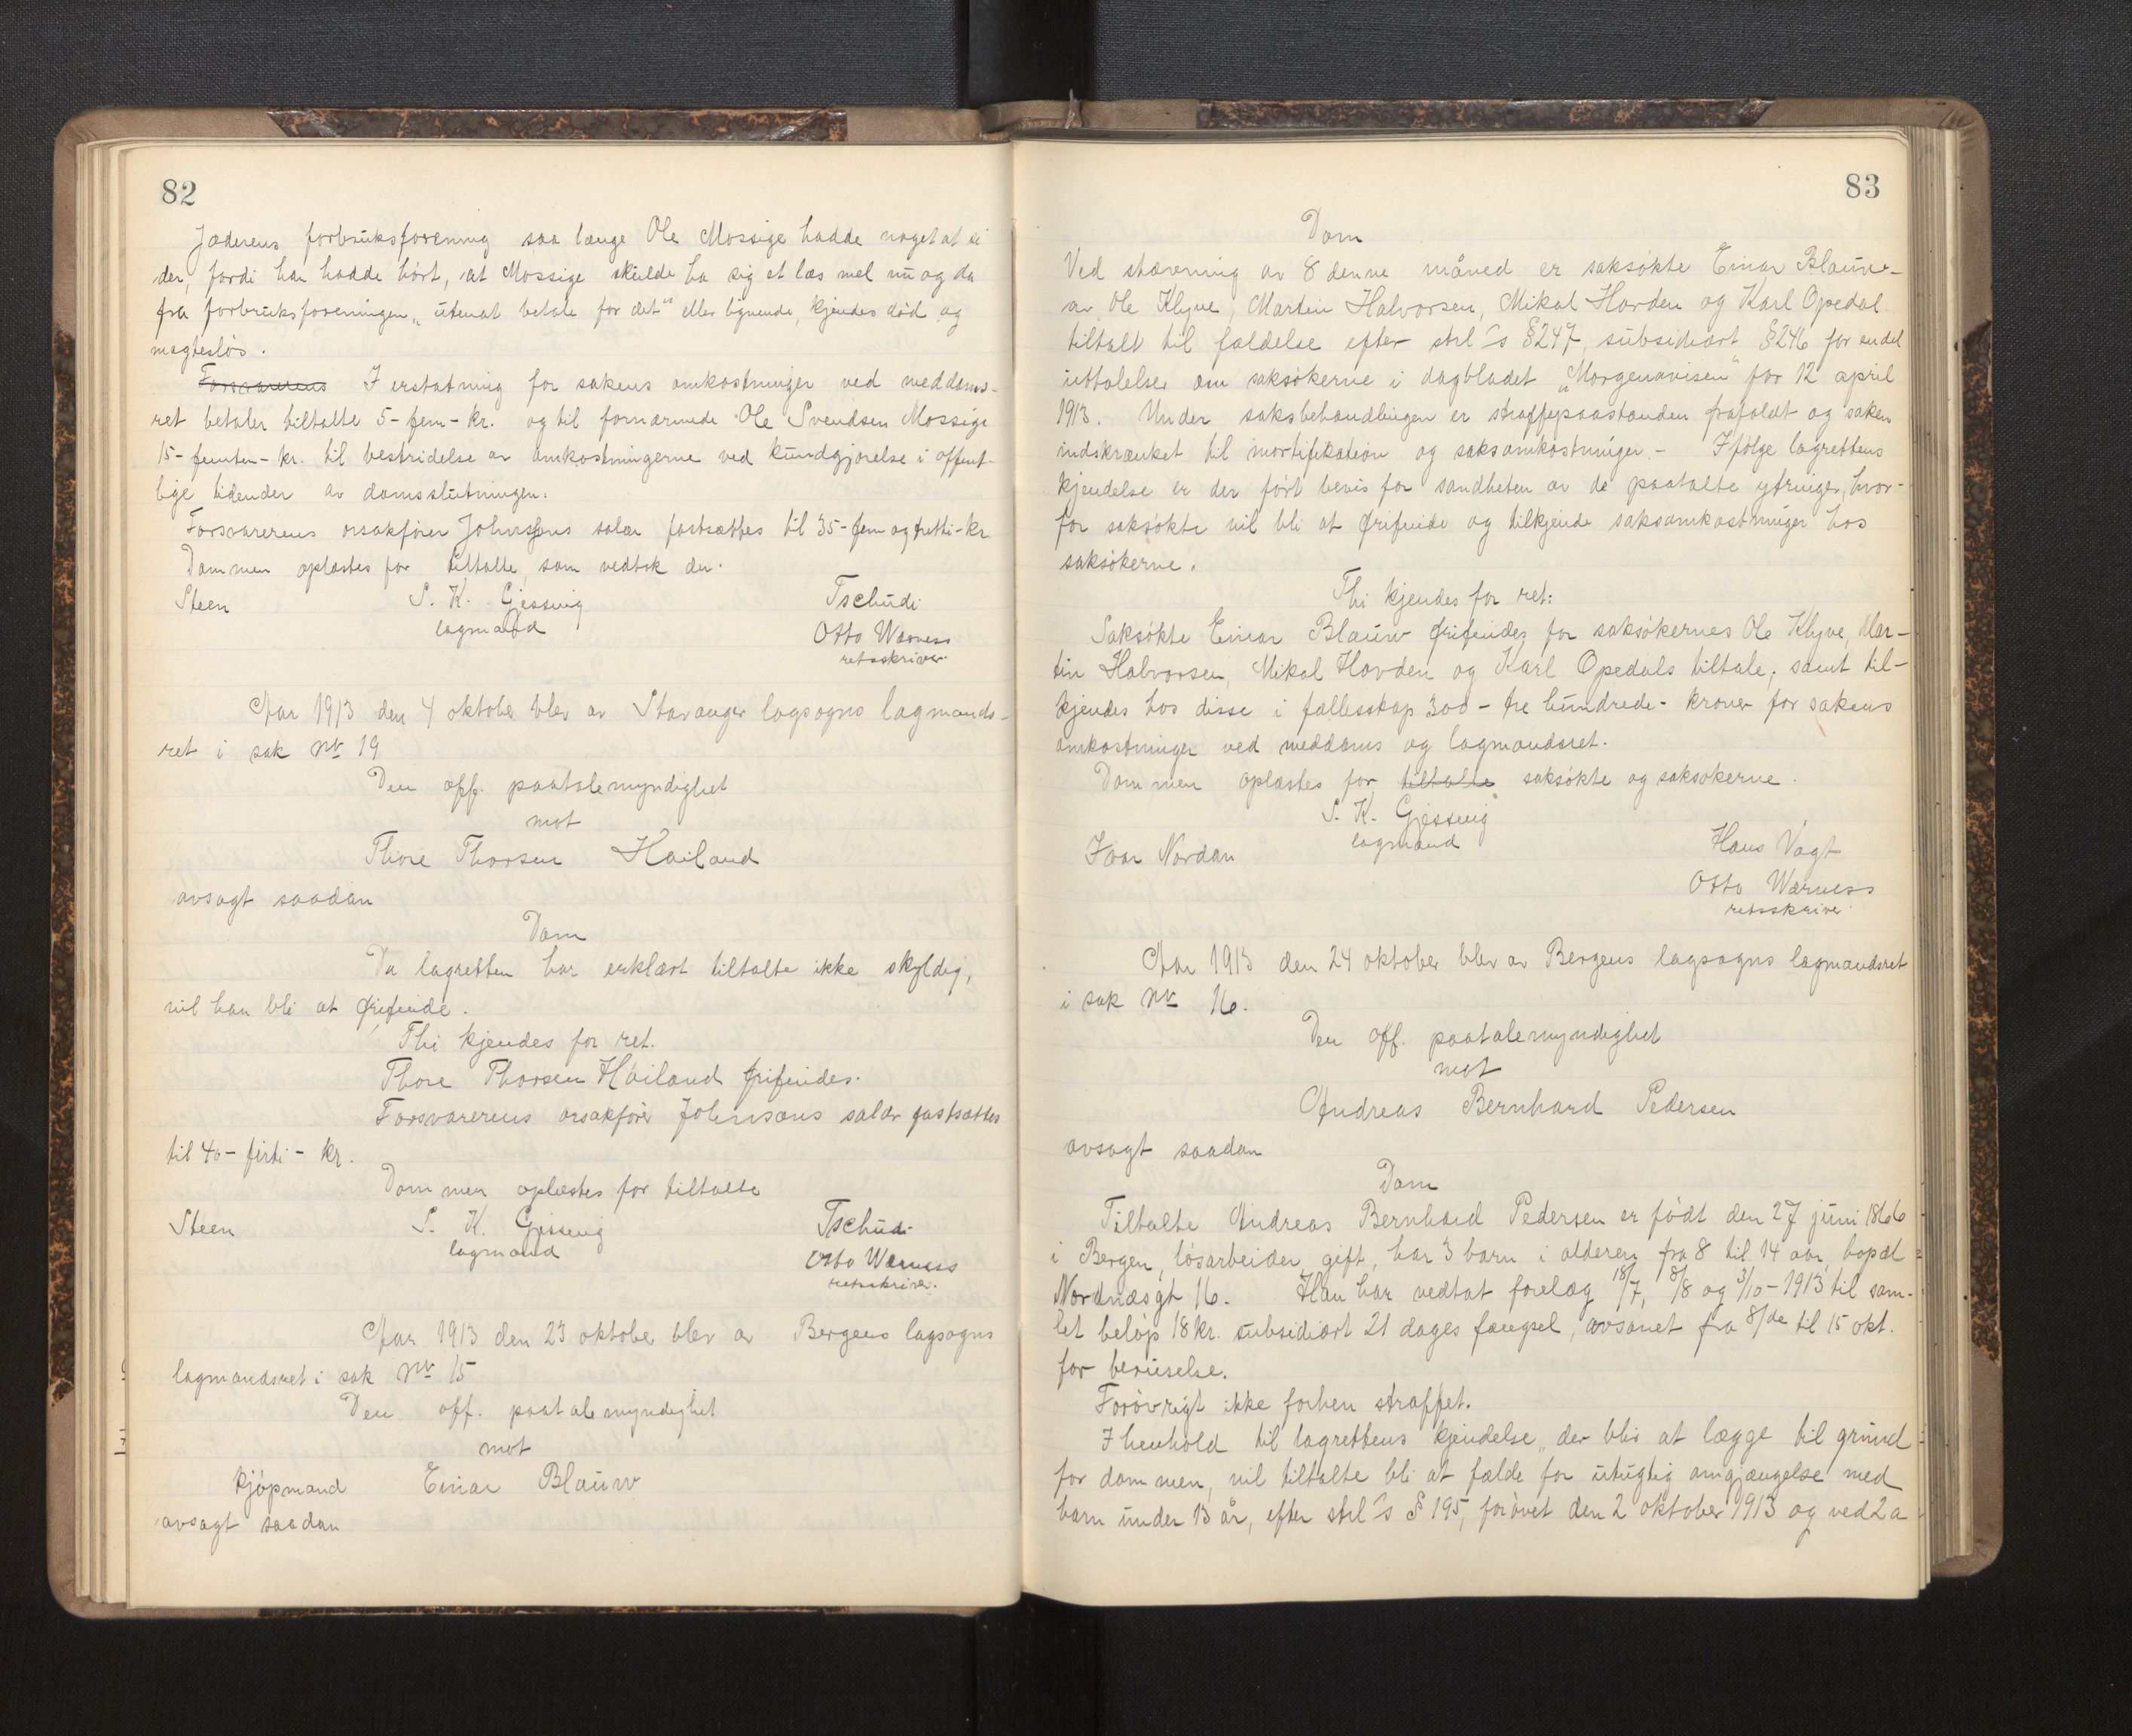 82
Jæderens forbruksforening saa længe Ole Mossige hadde noget at si
der, fordi han hadde hørt, at Mossige skulde ha sig et læs mel nu og da
fra forbruksforeningen „utenat betale for det“ eller lignende, kjendes død og
magtesløs.
Forsvarerens I erstatning for sakens omkostninger ved meddoms-
ret betaler tiltalte 5 - fem - kr. og til fornærmede Ole Svendsen Mossige
15 - femten - kr. til bestridelse av omkostningerne ved kundgjørelse i offent-
lige tidender av domsslutningen.
Forsvarerens orsakfører Johnsens salær fastsættes til 35 - fem og tretti - kr.
Dommen oplæstes for tiltalte, som vedtok den.
Steen S. K. Gjessing Tschudi
lagmand Otto Warness
retsskriver.
Aar 1913 den 4 oktober blev av Stavanger lagsogns lagmands-
ret i sak nr 19
Den off. paatalemyndighet
mot
Thore Thorsen Høiland
avsagt saadan
Dom
Da lagretten har erklært tiltalte ikke skyldig,
vil han bli at frifinde.
Thi kjendes for ret.
Thore Thorsen Høiland frifindes.
Forsvarerens orsakfører Johnsons salær fastsættes
til 40 - firti - kr.
Dommen oplæstes for tiltalte
Steen S. K. Gjessing Tschudi
lagmand Otto Warness
retsskriver.
Aar 1913 den 23 oktober blev av Bergens lagsogns
lagmandsret i sak nr 15
Den off. paatalemyndighet
mot
kjøpmand Einar Blauw
avsagt saadan
83
Dom
Ved stævning av 8 denne måned er saksøkte Einar Blauw
av Ole Klyve, Martin Halvorsen, Mikal Hovden og Karl Opedal
tiltalt til fældelse efter strl's § 247, subsidiært § 246 for endel
uttalelser om saksøkerne i dagbladet „Morgenavisen“ for 12 april
1913. Under saksbehandlingen er straffepaastanden frafaldt og saken
indskrænket til mortifikation og saksomkostninger. - Ifølge lagrettens
kjendelse er der ført bevis for sandheten av de paatalte ytringer, hvor-
for saksøkte vil bli at frifinde og tilkjende saksomkostninger hos
saksøkerne.
Thi kjendes for ret:
Saksøkte Einar Blauw frifindes for saksøkernes Ole Klyve, Mar-
tin Halvorsen, Mikal Hovden og Karl Opedals tiltale, samt til-
kjendes hos disse i fællesskap 300 - tre hundrede - kroner for sakens
omkostninger ved meddoms og lagmandsret.
Dommen oplæstes for tiltalte saksøkte og saksøkerne.
S. K. Gjessing
Ivar Nordan lagmand Hans Vogt
Otto Warness
retsskriver
Aar 1913 den 24 oktober blev av Bergens lagsogns lagmandsret
i sak nr 16.
Den off. paatalemyndighet
mot
Andreas Bernhard Pedersen
avsagt saadan
Dom
Tiltalte Andreas Bernhard Pedersen er født den 27 juni 1866
i Bergen, løsarbeider, gift, har 3 barn i alderen fra 8 til 14 aar, bopæl
Nordnæsgt 16. Han har vedtat forelæg 18/7, 8/8 og 3/10 - 1913 til sam-
let beløp 18 kr. subsidiært 21 dages fængsel, avsonet fra 8/de til 15 okt.
for beruselse.
Forøvrigt ikke forhen straffet.
I henhold til lagrettens kjendelse, der blir at lægge til grund
for dommen, vil tiltalte bli at fælde for utugtig omgjængelse med
barn under 13 år, efter strl's § 195, forøvet den 2 oktober 1913 og ved 2 a